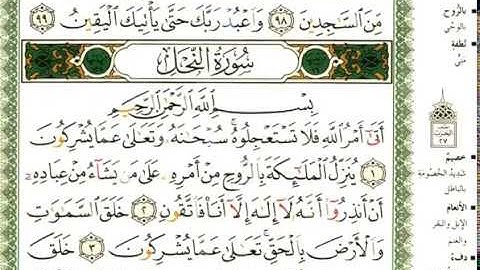 مِّنَ ٱلسَّـٰجِدِينَ ٩٨ وَٱعْبُدْ رَبَّكَ حَتَّىٰ يَأْتِيَكَ ٱلْيَقِينُ ٩٩
سُورَةُ النَّحْلِ
بِسْمِ ٱللَّهِ ٱلرَّحْمَـٰنِ ٱلرَّحِيمِ
أَتَىٰٓ أَمْرُ ٱللَّهِ فَلَا تَسْتَعْجِلُوهُ ۚ سُبْحَـٰنَهُۥ وَتَعَـٰلَىٰ عَمَّا يُشْرِكُونَ
١ يُنَزِّلُ ٱلْمَلَـٰٓئِكَةَ بِٱلرُّوحِ مِنْ أَمْرِهِۦ عَلَىٰ مَن يَشَآءُ مِنْ عِبَادِهِۦٓ
أَنْ أَنذِرُوٓا۟ أَنَّهُۥ لَآ إِلَـٰهَ إِلَّآ أَنَا۠ فَٱتَّقُونِ ٢ خَلَقَ ٱلسَّمَـٰوَٰتِ
وَٱلْأَرْضَ بِٱلْحَقِّ ۚ تَعَـٰلَىٰ عَمَّا يُشْرِكُونَ ٣ خَلَقَ
بالرُّوح
بالوحي
نُطْفَةٍ
مَنِيّ
٢٧
خَصِيمٌ
شَدِيدُ الخُصُومَةِ
بِالبَاطِلِ
الأنْعَامَ
الإبل والبقر
والغنم
دِفْءٌ